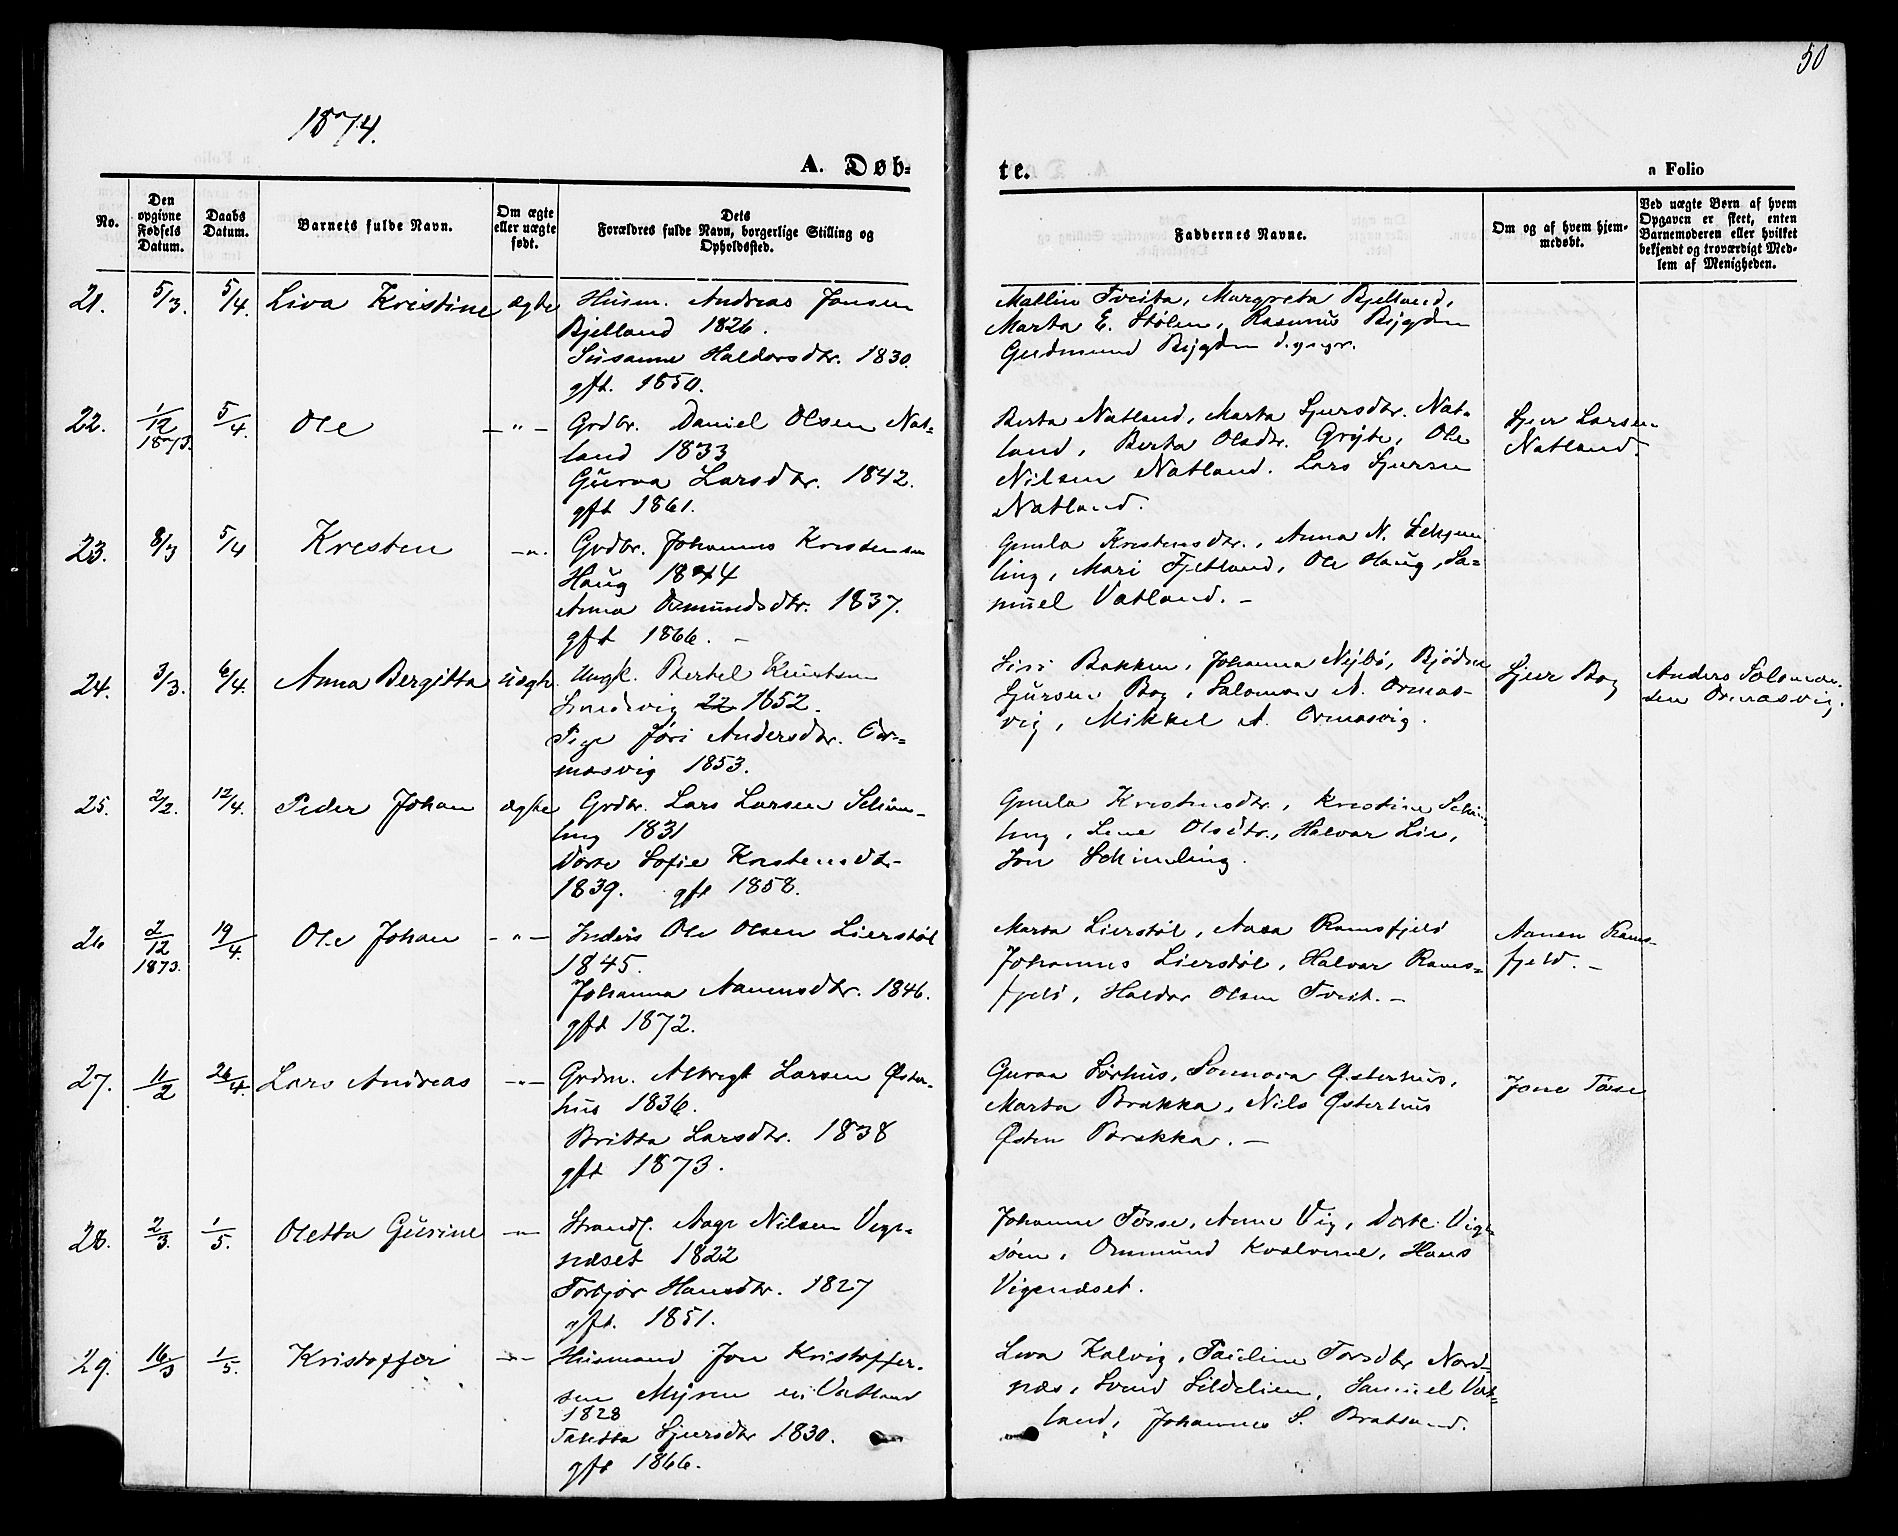 50
1874.
A. Døb-
te.
a Folio
No.
Den opgivne Fødsels Datum.
Daabs Datum.
Barnets fulde Navn.
Om ægte eller uægte født.
Dets Forældres fulde Navn, borgerlige Stilling og Opholdssted.
Faddernes Navne.
Om og af hvem hjemmedøbt.
Ved uægte Børn af hvem Opgaven er skeet, enten Barnemoderen eller hvilket bekjendt og troværdigt Medlem af Menigheden.
21. 5/3. 5/4. Liva Kristine ægte
Husm. Andreas Jonsen
Bjelland 1826.
Susanne Haldorsdtr. 1830.
gft. 1850.
Mallin Tveita, Margreta Bjelland,
Marta E. Stølen, Rasmus Bygden
Gudmund Bygden
22. 1/12 1873. 5/4. Ole — " —
Grdbr. Daniel Olsen Nat-
land 1833
Guroa Larsdtr. 1842.
gft 1861.
Berta Natland, Marta Sjursdtr. Nat-
land, Berta Olsdtr. Gryte, Ole
Nilsen Natland. Lars Sjursen
Natland.
Sjur Larsen
Natland.
23. 8/3 5/4 Kresten — " —
Grdbr. Johannes Krestensen
Haug 1844
Anna Osmundsdtr. 1837.
gft 1866. —
Gunla Krestensdtr., Anna N.
ling, Mari Fjetland, Ole Haug, Sa-
muel Vatland. —
24. 3/3. 6/4. Anna Bergitta uægte
Ungk. Bertel Knutsen
Sandvig 22 1852.
Pige Jøri Andersdtr. Or-
masvig 1853.
Siri Bakken, Johanna Nybø,
Sjursen Bog, Salomon A. Ormas-
vig, Mikkel A. Ormasvig.
Sjur Bog
Anders Salomon-
sen Ormasvig.
25. 2/2. 12/4. Peder Johan ægte
Grdbr. Lars Larsen Schim-
ling 1831
Dorte Sofie Krestensdtr-
1839. gft 1858.
Gunla Krestensdtr., Kristine Schim-
ling, Lene Olsdtr., Halvar Lie,
Jon Schimling.
26 2/12 1873. 19/4. Ole Johan — " —
Inders Ole Olsen Lierstøl
1845.
Johanna Aanensdtr. 1846.
gft 1872.
Marta Lierstøl, Aasa Ramsfjeld
Johannes Lierstøl, Halvar Rams-
fjeld, Haldor Olsen Tveit. —
Aanen Rams-
fjeld. —
27. 11/2 26/4. Lars Andreas — " —
Grdm. Albregt Larsen Øster-
hus 1836.
Britta Larsdtr. 1838
gft 1873.
Guroa Sørhus, Sonnova Østerhus,
Marta Brakka, Nils Østerhus
Østen Brakka. —
Jone Tøse
28. 2/3. 1/5. Oletta Gurine — " —
Strands. Aage Nilsen Vige-
næset 1822
Torbjør Hansdtr. 1827
gft. 1851.
Johanne Tøsse, Anne Vig, Dorte Vig-
søen, Ommund Kvalvene, Hans
Vigenæset.
29. 16/3 1/5. Kristoffer — " —
Husmand Jon Kristoffer-
sen Myren u. Vatland
1828
Taletta Sjursdtr 1830.
gft 1866.
Liva Kalvig, Pauline Torsdtr Nord-
næs, Svend Sildelien, Samuel Vat-
land, Johannes S. Bratsand.